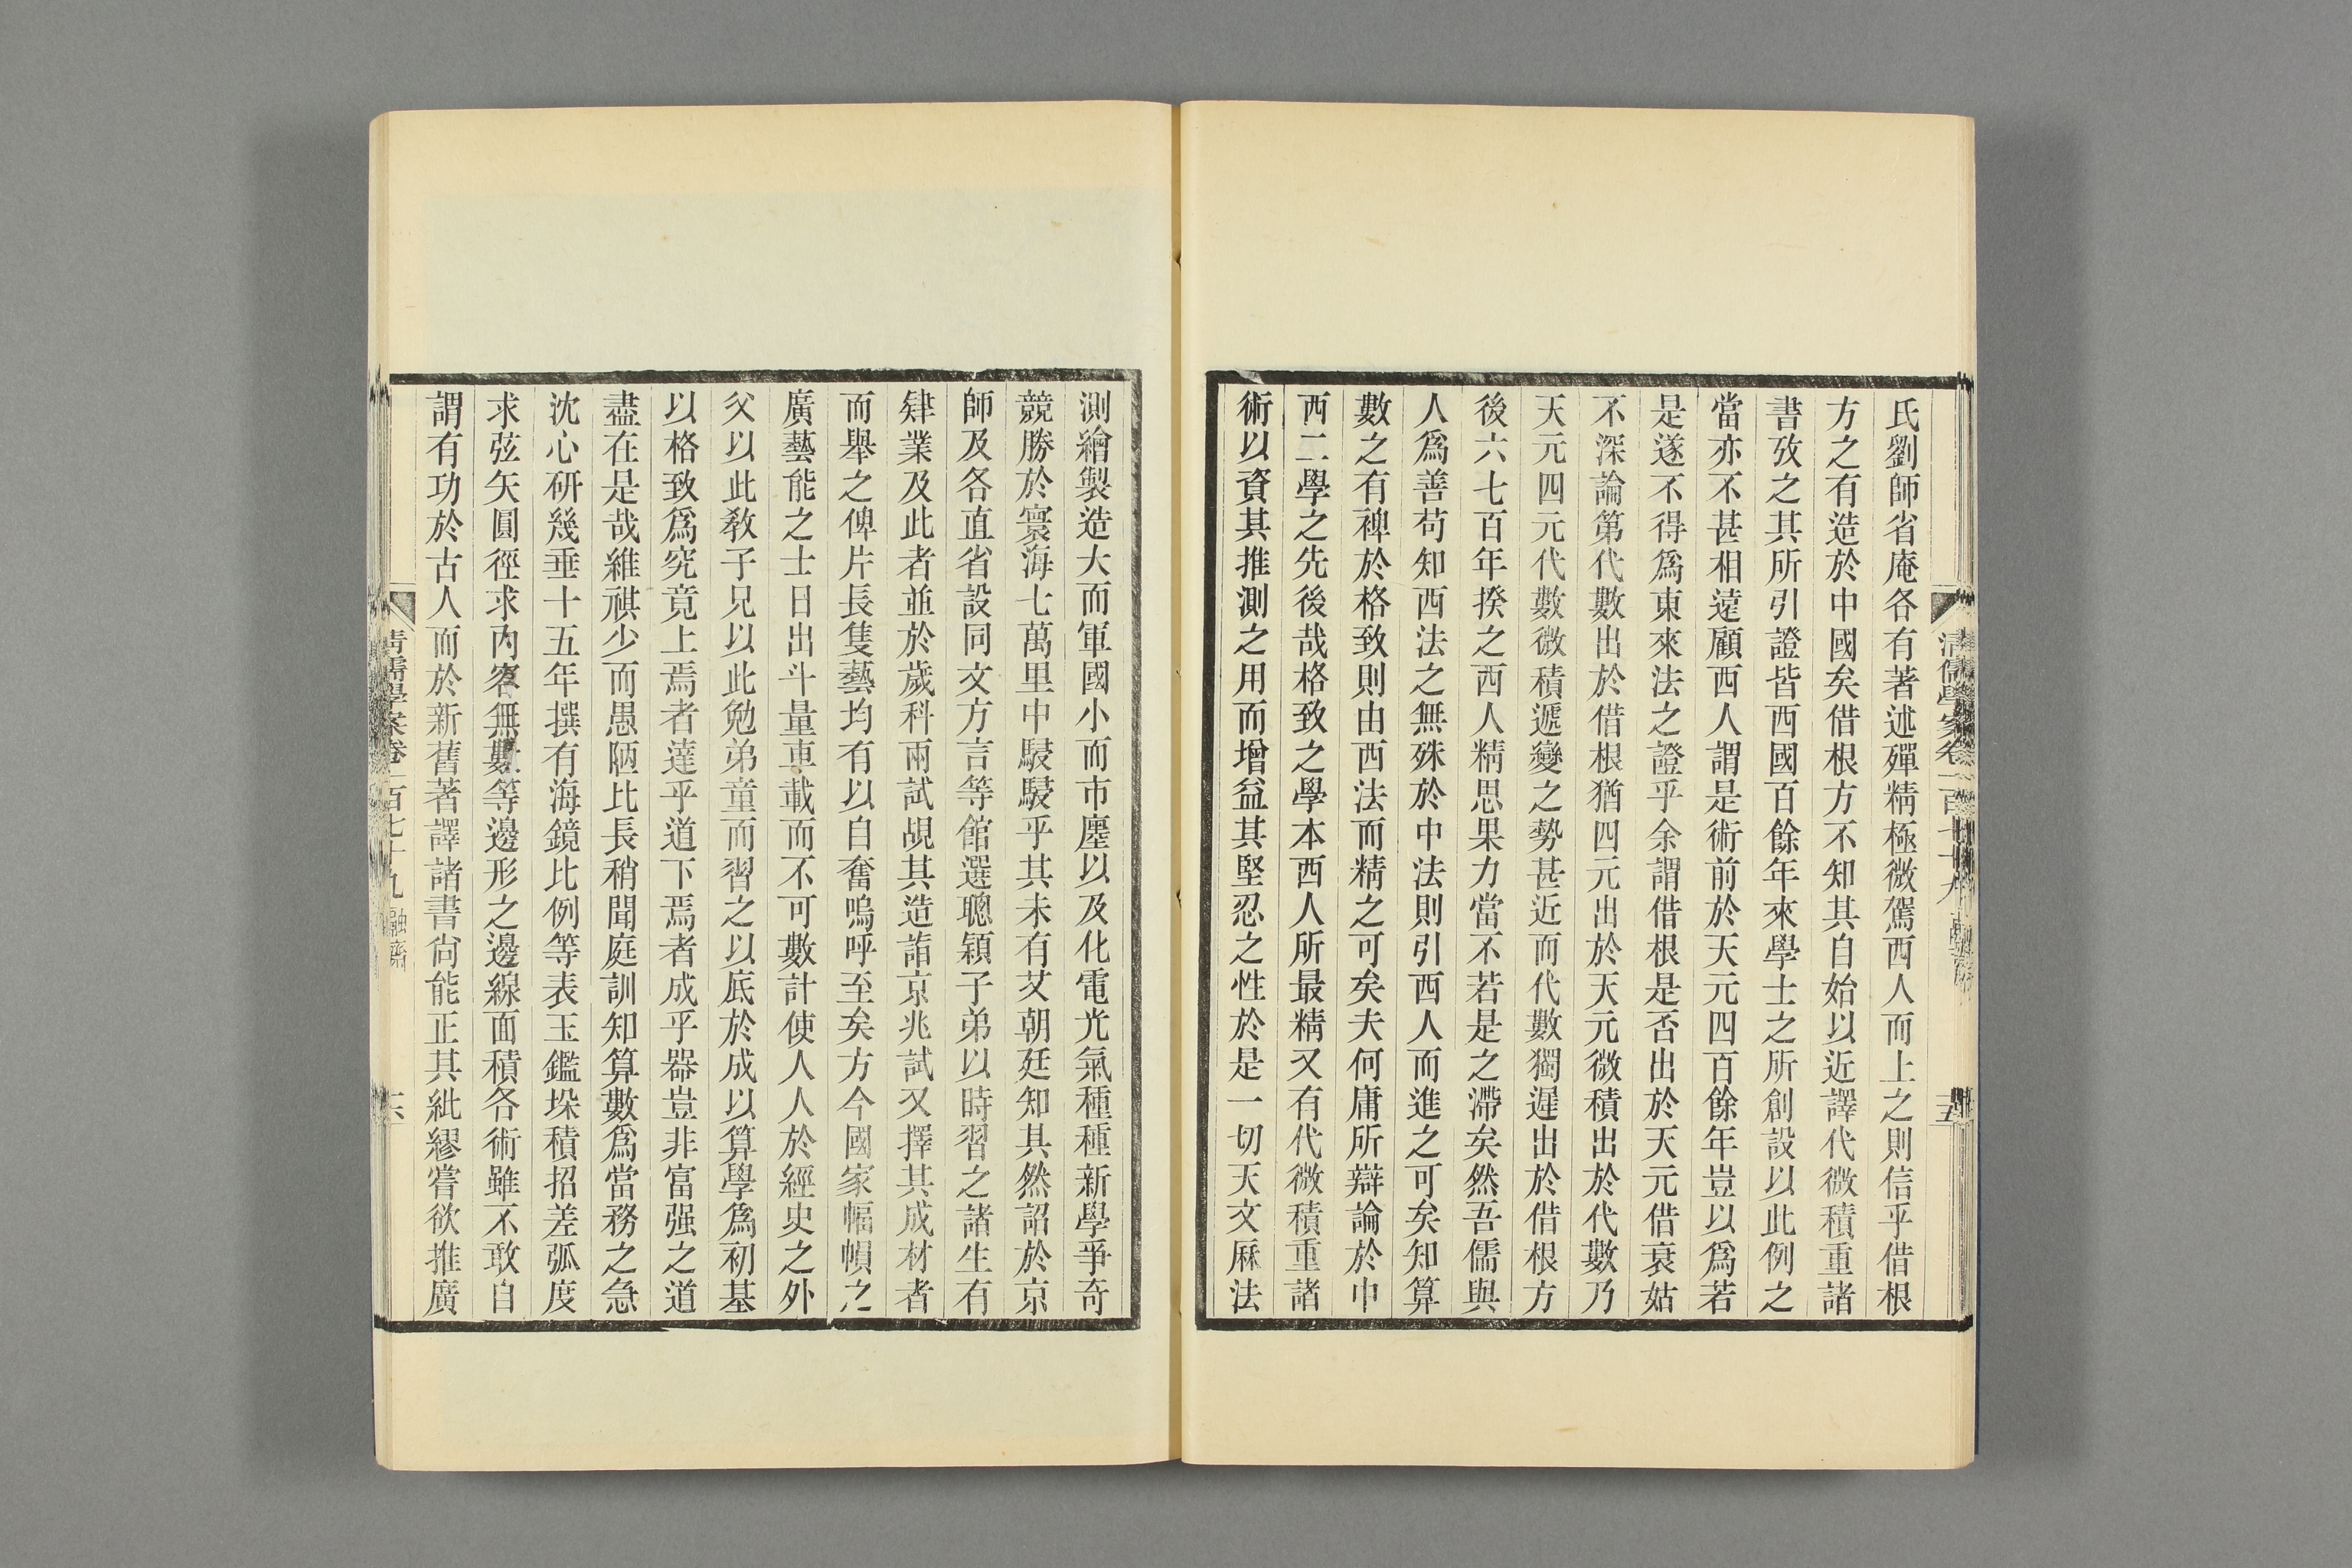 氏劉師省庵各有著述殫精極微駕西人而上之則信乎借根
方之有造於中國矣借根方不知其自始以近譯代微積重諸
書攷之其所引證皆西國百餘年來學士之所創設以此例之
當亦不甚相遠顧西人謂是術前於天元四百餘年豈以爲若
是遂不得爲東來法之證乎余謂借根是否出於天元借衰姑
不深論第代數出於借根猶四元出於天元微積出於代數乃
天元四元代數微積遞變之勢甚近而代數獨遲出於借根方
後六七百年揆之西人精思果力當不若是之滯矣然吾儒與
人爲善苟知西法之無殊於中法則引西人而進之可矣知算
數之有裨於格致則由西法而精之可矣夫何庸所辯論於中
西二學之先後哉格致之學本西人所最精又有代微積重諸
術以資其推測之用而增益其堅忍之性於是一切天文厤法
測繪製造大而軍國小而市廛以及化電光氣種種新學爭奇
競勝於寰海七萬里中駸駸乎其未有艾朝廷知其然詔於京
師及各直省設同文方言等館選聰穎子弟以時習之諸生有
肄業及此者並於歲科兩試覘其造詣京兆試又擇其成材者
而舉之俾片長隻藝均有以自奮嗚呼至矣方今國家幅幀之
廣藝能之士日出斗量車載而不可數計使人人於經史之外
父以此敎子兄以此勉弟童而習之以底於成以算學爲初基
以格致爲究竟上焉者達乎道下焉者成乎器豈非富强之道
盡在是哉維祺少而愚陋比長稍聞庭訓知算數爲當務之急
沈心研幾垂十五年撰有海鏡比例等表玉鑑垛積招差弧度
求弦矢圓徑求內容無數等邊形之邊線面積各術雖不敢自
謂有功於古人而於新舊著譯諸書尙能正其紕繆嘗欲推廣
清儒學案卷一百七十九 融齋
六
清儒學案卷一百七十九
五